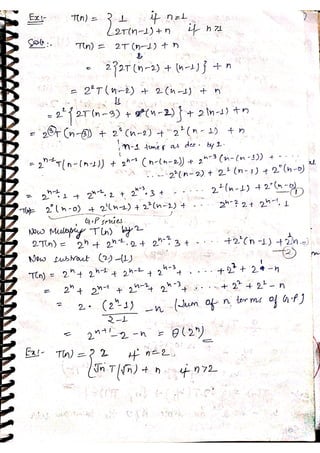 Ex:- T(n) = { 1 if n=1
2T(n-1)+n if n>1
Sol:- T(n) = 2T(n-1) + n
= 2{2T(n-2) + (n-1)} + n
= 2²T(n-2) + 2(n-1) + n
= 2²{2T(n-3) + (n-2)} + 2(n-1) + n
= 2³T(n-3) + 2²(n-2) + 2¹(n-1) + n
= 2ⁿ⁻¹T(n-(n-1)) + 2ⁿ⁻²(n-(n-2)) + 2ⁿ⁻³(n-(n-3)) + ....
.... 2²(n-2) + 2¹(n-1) + 2⁰(n-0)
= 2ⁿ⁻¹.1 + 2ⁿ⁻².2 + 2ⁿ⁻³.3 + ..... 2¹(n-1) + 2⁰(n-0) ①
T(n)= 2⁰(n-0) + 2¹(n-1) + 2²(n-2) + .... 2ⁿ⁻².2 + 2ⁿ⁻¹.1
G.P series
Now Multiply T(n) by 2
2T(n) = 2ⁿ + 2ⁿ⁻¹.2 + 2ⁿ⁻².3 + .... +2²(n-1) + 2¹n ②
Now subtract (2)-(1)
T(n) = 2ⁿ + 2ⁿ⁻¹ + 2ⁿ⁻² + 2ⁿ⁻³ + .... + 2² + 2¹ - n
= 2ⁿ + 2ⁿ⁻¹ + 2ⁿ⁻² + 2ⁿ⁻³ + .... + 2² + 2¹ - n
= 2.(2ⁿ-1)/2-1 - n (Sum of n terms of G.P)
= 2ⁿ⁺¹-2-n = θ(2ⁿ)
Ex:- T(n) = { 2 if n=2
√n T(√n) + n if n>2